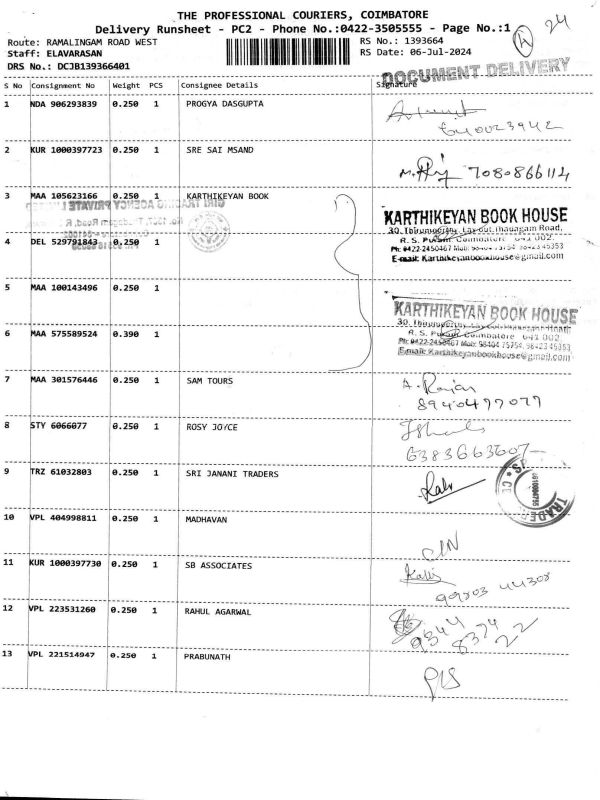 THE PROFESSIONAL COURIERS, COIMBATORE
Delivery Runsheet - PC2 - Phone No.:0422-3505555 - Page No.:1
24
4
Route: RAMALINGAM ROAD WEST
RS No.: 1393664
Staff: ELAVARASAN
RS Date: 06-Jul-2024
DRS No.: DCJB139366401
DOCUMENT DELIVERY
S No Consignment No Weight PCS Consignee Details Signature
1 NDA 906293839 0.250 1 PROGYA DASGUPTA
640023942
2 KUR 1000397723 0.250 1 SRE SAI MSAND
7080866114
3 MAA 105623166 0.250 1 KARTHIKEYAN BOOK
KARTHIKEYAN BOOK HOUSE
30, Thirumoorthy Lay-out, Thadagam Road,
R. S. Puram Coimbatore 641 002.
E-mail: Karthikeyanbookhouse@gmail.com
4 DEL 529791843 0.250 1
5 MAA 100143496 0.250 1
KARTHIKEYAN BOOK HOUSE
R. S. Puram Coimbatore 641 002.
Ph: 0422-2450467 Mob: 98404 75754, 98423 45353
E-mail: Karthikeyanbookhouse@gmail.com
6 MAA 575589524 0.390 1
7 MAA 301576446 0.250 1 SAM TOURS
A. Rajan
8940477077
8 STY 6066077 0.250 1 ROSY JOYCE
6383663607
9 TRZ 61032803 0.250 1 SRI JANANI TRADERS
TRADERS
10 VPL 404998811 0.250 1 MADHAVAN
11 KUR 1000397730 0.250 1 SB ASSOCIATES
99803 44308
12 VPL 223531260 0.250 1 RAHUL AGARWAL
9344
8374
22
13 VPL 221514947 0.250 1 PRABUNATH